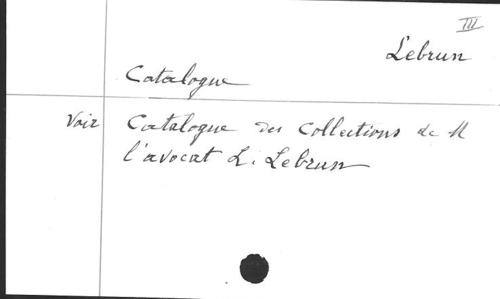 III
Lebrun
Catalogue
Voir Catalogue des Collections de M
l'avocat L. Lebrun